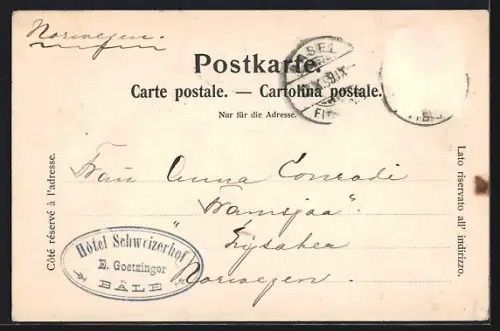 Norwegen.
Postkarte.
Carte postale. — Cartolina postale.
Nur für die Adresse.
Côté réservé à l'adresse.
Lato riservato all' indirizzo.
Frau Anna Conradi
"Framsjaa"
Lysaker
Norwegen.
Hôtel Schweizerhof
E. Goetzinger
BÂLE
BASEL